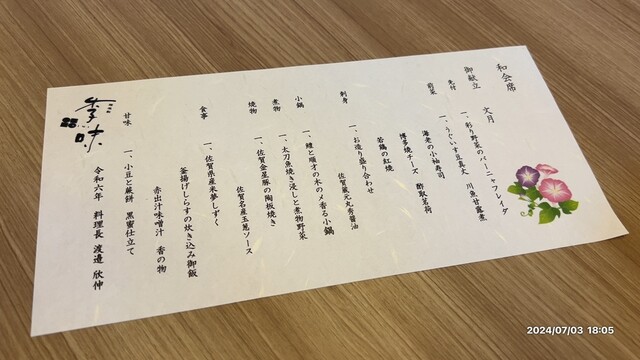 和会席
御献立　文月
先付　一、彩り野菜のバーニャフレイダ
前菜　一、うぐいす豆真丈　川魚甘露煮
海老の小袖寿司　酢取茗荷
博多焼チーズ
若鶏の紅焼
刺身　一、お造り盛り合わせ
佐賀蔵元丸秀醤油
小鍋　一、鱧と順才の木のメ香る小鍋
煮物　一、太刀魚焼き浸しと煮物野菜
焼物　一、佐賀金星豚の陶板焼き
佐賀名産玉葱ソース
食事　一、佐賀県産米夢しずく
釜揚げしらすの炊き込み御飯
赤出汁味噌汁　香の物
甘味　一、小豆と蕨餅　黒蜜仕立て
令和六年　料理長　渡邉　欣伸
季味
2024/07/03 18:05